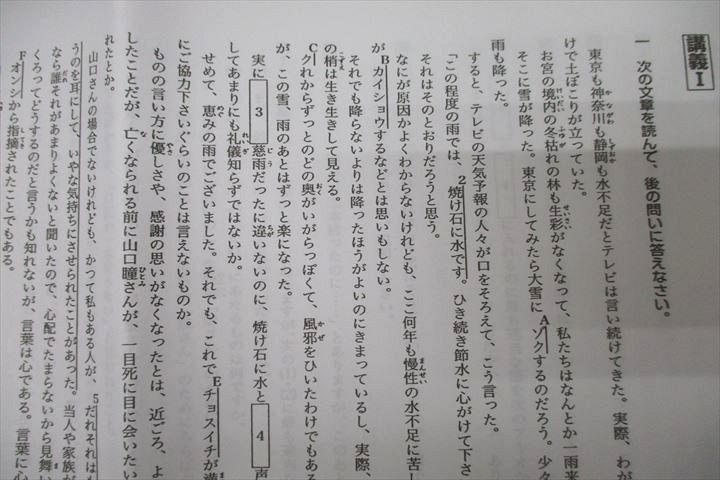 講義Ⅰ
一　次の文章を読んで、後の問いに答えなさい。
東京も神奈川も静岡も水不足だとテレビは言い続けてきた。実際、わが
けで土ぼこりが立っていた。
お宮の境内の冬枯れの林も生彩がなくなって、私たちはなんとか一雨来
そこに雪が降った。東京にしてみたら大雪にAゾクするのだろう。少々
雨も降った。
すると、テレビの天気予報の人々が口をそろえて、こう言った。
「この程度の雨では、2焼け石に水です。ひき続き節水に心がけて下さ
それはそのとおりだろうと思う。
なにが原因かよくわからないけれども、ここ何年も慢性の水不足に苦し
がBカイショウするなどとは思いもしない。
それでも降らないよりは降ったほうがよいのにきまっているし、実際、
の梢は生き生きして見える。
Cクれからずっとのどの奥がいがらっぽくて、風邪をひいたわけでもある
が、この雪、雨のあとはずっと楽になった。
実に　3　慈雨だったに違いないのに、焼け石に水と　4　声
してあまりにも礼儀知らずではないか。
せめて、恵みの雨でございました。それでも、これでEチョスイチが満
にご協力下さいぐらいのことは言えないものか。
ものの言い方に優しさや、感謝の思いがなくなったとは、近ごろ、よ
したことだが、亡くなられる前に山口瞳さんが、一目死に目に会いたい
れたとか。
山口さんの場合でないけれども、かつて私もある人が、5だれそれはも
うのを耳にして、いやな気持ちにさせられたことがあった。当人や家族が
なら誰それがあまりよくないと聞いたので、心配でたまらないから見舞い
くろってどうするのだと言うかも知れないが、言葉は心である。言葉に心
Fオンシから指摘されたことでもある。